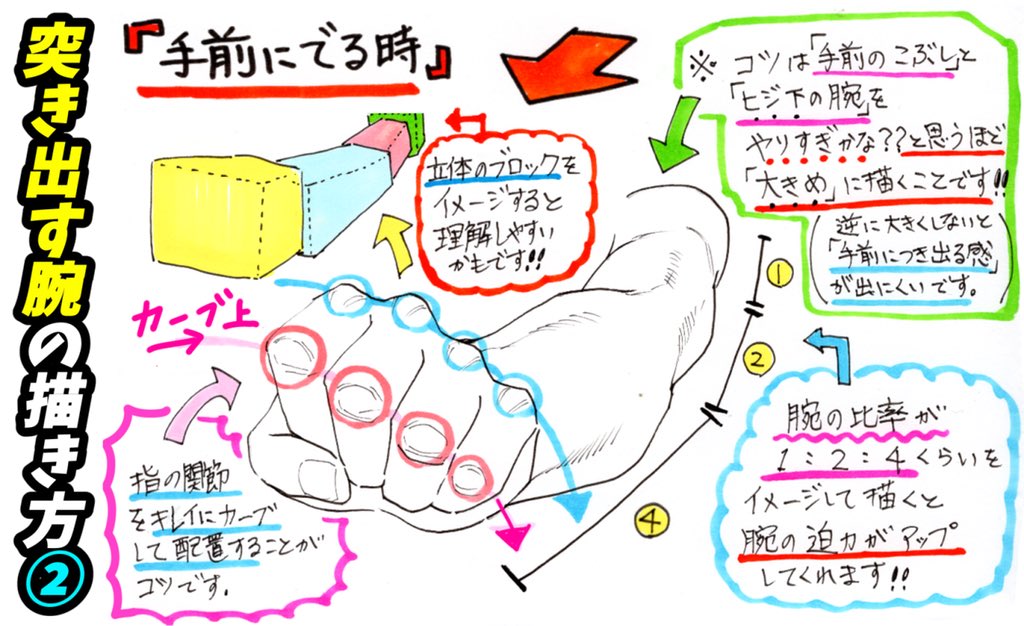 突き出す腕の描き方②
『手前にでる時』
※ コツは「手前のこぶし」と
「ヒジ下の腕」を
やりすぎかな??と思うほど
「大きめ」に描くことです!!
(逆に大きくしないと
「手前につき出る感」
が出にくいです。)
立体のブロックを
イメージすると
理解しやすい
かもです!!
カーブ上
①
②
④
指の関節
をキレイにカーブ
して配置することが
コツです。
腕の比率が
1:2:4くらいを
イメージして描くと
腕の迫力がアップ
してくれます!!